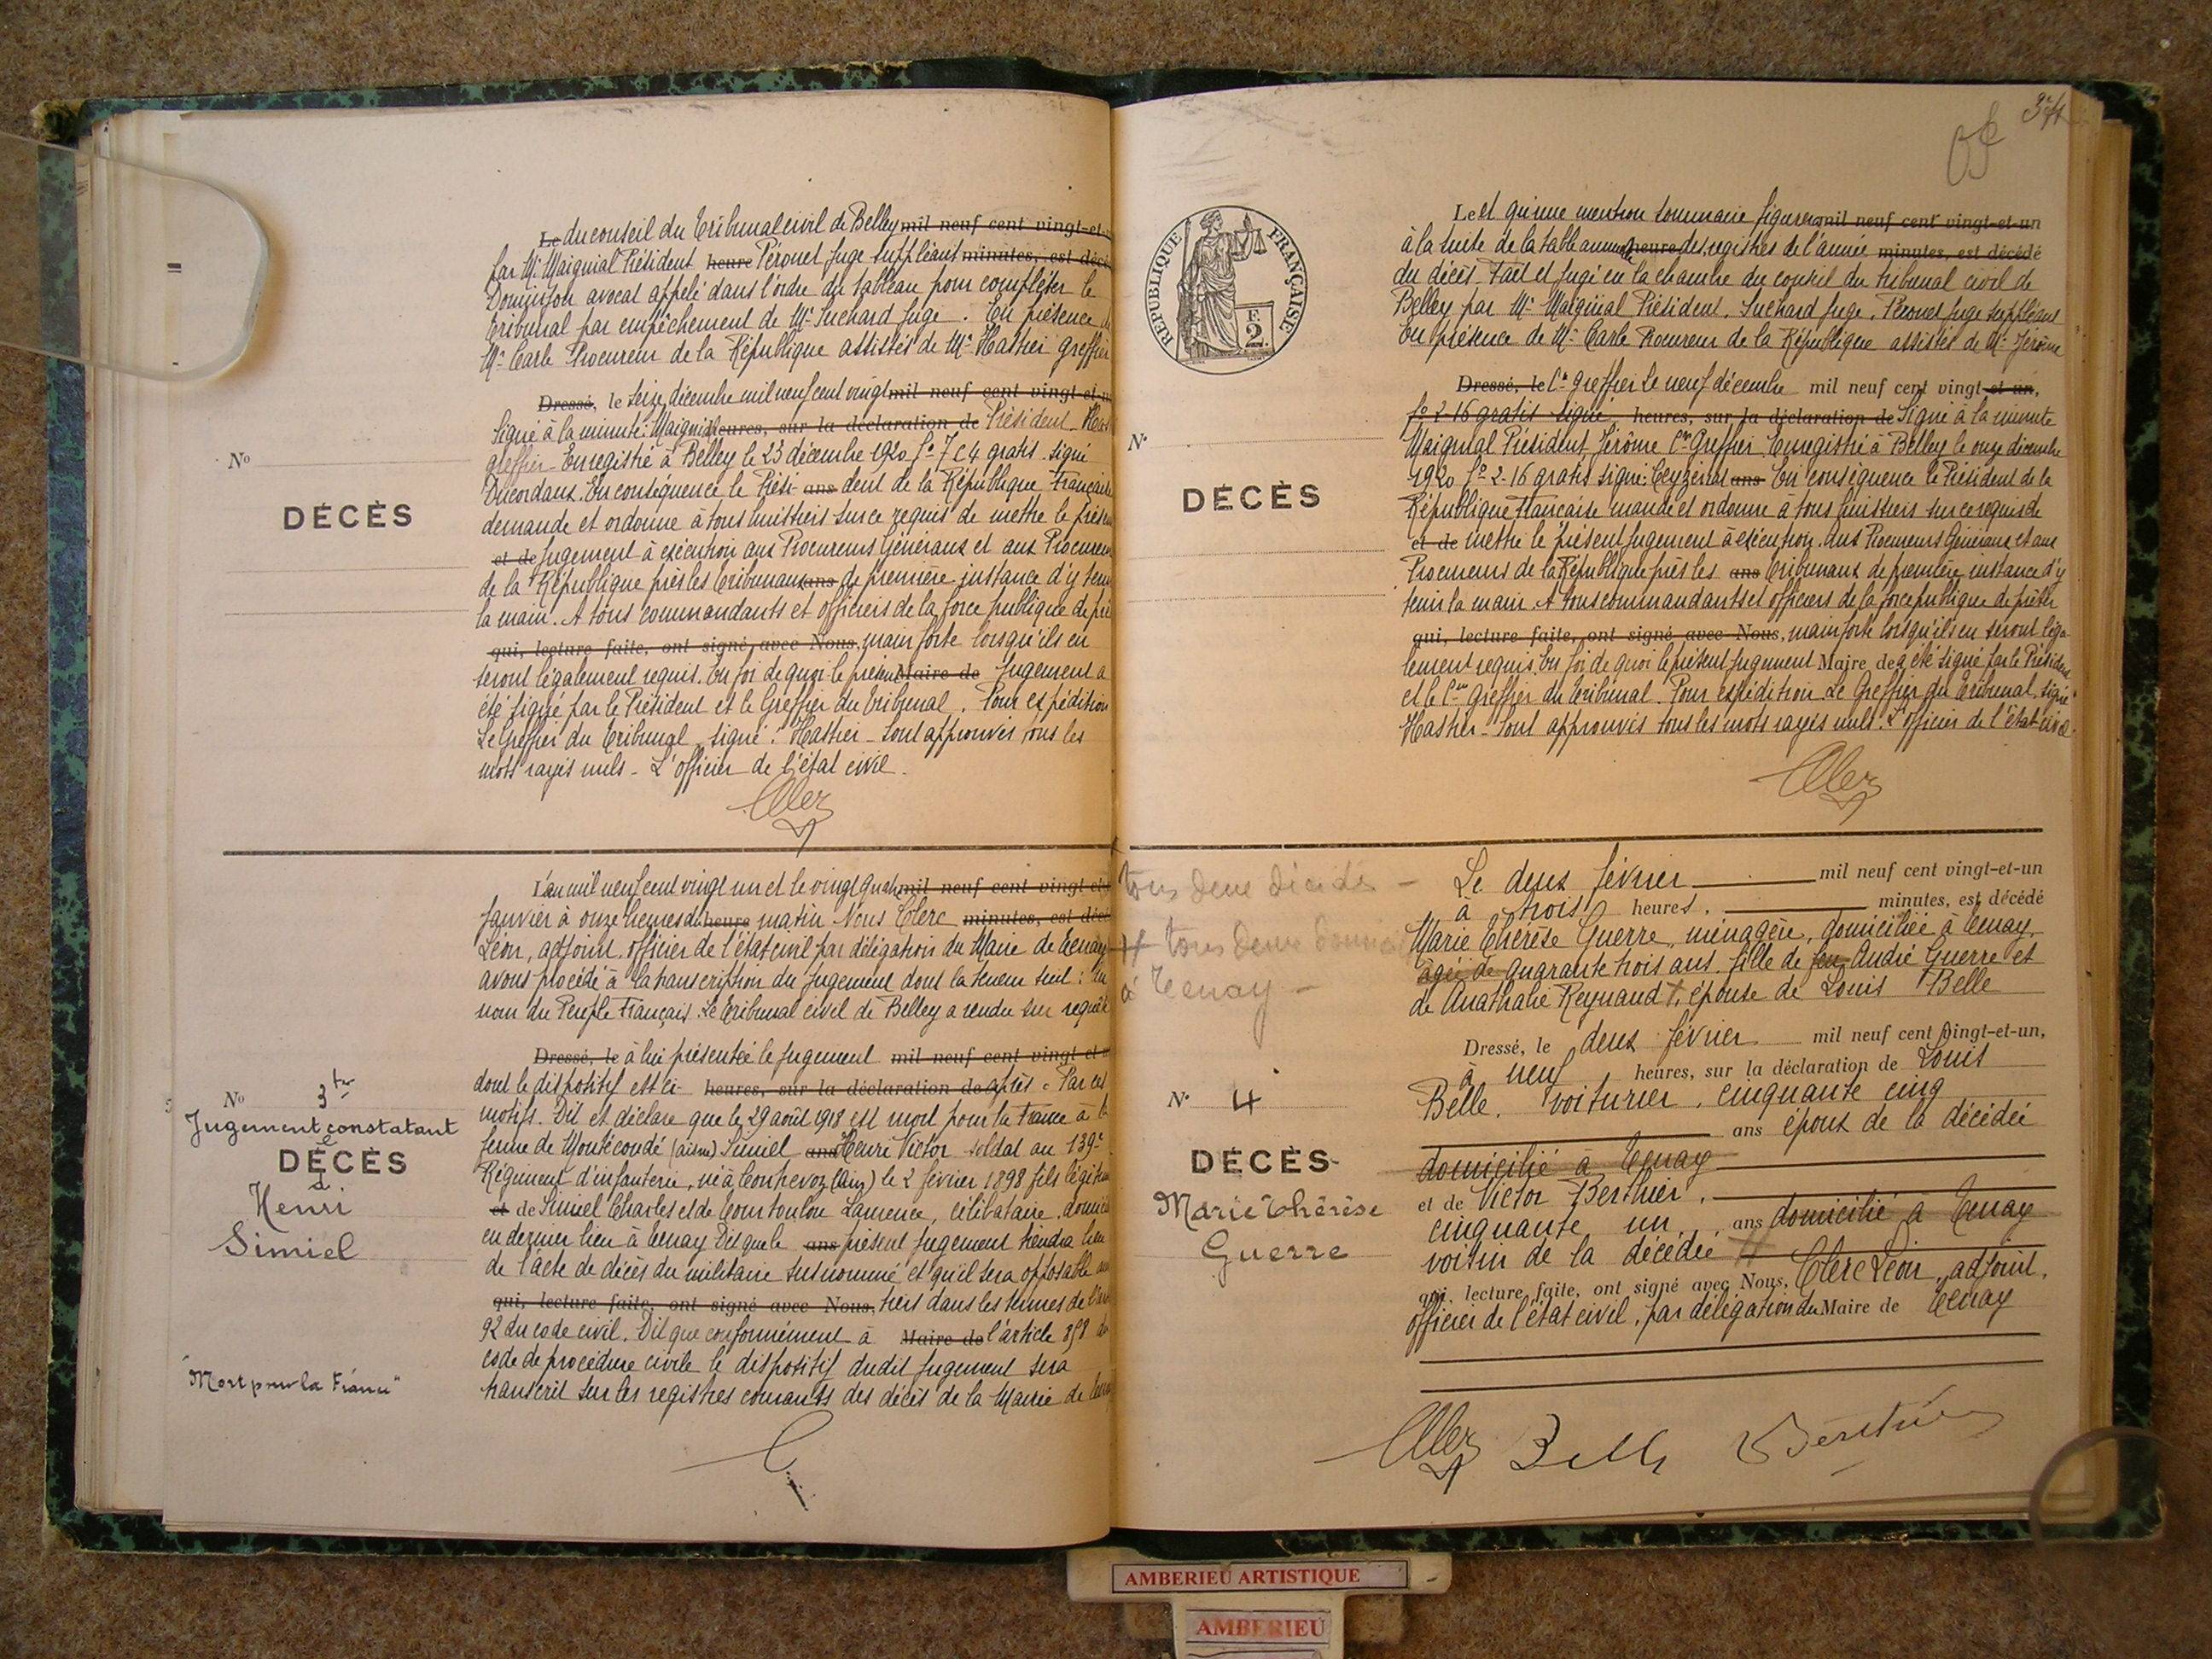 Le du conseil du Tribunal civil de Belley mil neuf cent vingt-et-
par Mr. Maignial Président heure Péronet Juge suppléant minutes, est décé
avocat appelé dans l'ordre du tableau pour compléter le
Tribunal par empêchement de Mr. Suchard Juge. En présence
Mr. Carle Procureur de la République assistés de Mr. Hastier greffier
Dressé, le seize décembre mil neuf cent vingt mil neuf cent vingt-et-
Signé à la minute: Maignial heures, sur la déclaration de Président -
greffier - Enregistré à Belley le 23 décembre 1920 fo 7 C 4 gratis. signé
En conséquence, le Prési- ans dent de la République Française
demande et ordonne à tous huissiers sur ce requis de mettre le
et de Jugement à exécution aux Procureurs Généraux et aux
de la République près les Tribunaux ans de première instance d'y
la main. A tous commandants et officiers de la force publique de
qui, lecture faite, ont signé avec Nous, main forte lorsqu'ils en
seront légalement requis. En foi de quoi le présent Maire de Jugement a
été signé par le Président et le Greffier du Tribunal. Pour expédition
Le Greffier du Tribunal signé: Hastier - Sont approuvés tous les
mots rayés nuls - L'officier de l'état civil.
No
DÉCÈS
L'an mil neuf cent vingt un et le vingt quatre mil neuf cent vingt-et-
Janvier à onze heures du heure matin Nous Clerc minutes, est décé
Léon, adjoint, officier de l'état civil par délégation du Maire de Tenay
avons procédé à la transcription du Jugement dont la teneur suit:
nom du Peuple Français. Le Tribunal civil de Belley a rendu sur requête
Dressé, le à lui présentée le Jugement mil neuf cent vingt-et-
dont le dispositif est ci- heures, sur la déclaration de après. Par ces
motifs. Dit et déclare que le 29 août 1918 est mort pour la France à la
ferme de Montécouvé (aisne) Simiel ans Henri Victor soldat au 139e
Régiment d'infanterie, né à Conhevoz (Ain) le 2 février 1898 fils
et de Simiel Charles et de Courtoulou Laurence, célibataire,
en dernier lieu à Tenay Dit que le ans présent Jugement tiendra lieu
de l'acte de décès du militaire susnommé et qu'il sera opposable aux
qui, lecture faite, ont signé avec Nous, tiers dans les termes de
92 du code civil. Dit que conformément à Maire de l'article 858 du
code de procédure civile le dispositif dudit Jugement sera
transcrit sur les registres courants des décès de la Mairie de
No 3ter
Jugement constatant
DÉCÈS
Henri
Simiel
"Mort pour la France"
374
RÉPUBLIQUE FRANÇAISE
E
2
Le et qu'une mention sommaire figurera mil neuf cent vingt-et-un
à la suite de la table annuelle heure des registres de l'année minutes, est décédé
du décès. Fait et Jugé en la chambre du conseil du Tribunal civil de
Belley par Mr. Maignial Président, Suchard Juge, Péronet Juge suppléant
En présence de Mr. Carle Procureur de la République assistés de Mr. Jérôme
Dressé, le Cis Greffier Le neuf décembre mil neuf cent vingt et un,
fo 2-16 gratis signé heures, sur la déclaration de Signé à la minute
Maignial Président, Jérôme Cis Greffier, Enregistré à Belley le onze décembre
1920 fo 2-16 gratis signé: Ceyzériat ans En conséquence le Président de la
République Française mande et ordonne à tous huissiers sur ce requis de
et de mettre le présent Jugement à exécution. Aux Procureurs Généraux et aux
Procureurs de la République près les ans Tribunaux de première instance d'y
tenir la main. A tous commandants et officiers de la force publique de prêter
qui, lecture faite, ont signé avec Nous, main forte lorsqu'ils en seront léga-
lement requis. En foi de quoi le présent Jugement Maire de a été signé par le Président
et le Cis Greffier du Tribunal. Pour expédition. Le Greffier du Tribunal, signé:
Hastier - Sont approuvés tous les mots rayés nuls. L'officier de l'état civil.
No
DÉCÈS
tous deux
tous deux
à Tenay -
Le deux février mil neuf cent vingt-et-un
à trois heures. minutes, est décédé
Marie Thérèse Guerre, ménagère, domiciliée à Tenay,
âgée de quarante trois ans. fille de feu André Guerre et
de Anathalie Reynaud, épouse de Louis Belle
Dressé, le deux février mil neuf cent vingt-et-un,
à neuf heures, sur la déclaration de Louis
Belle, voiturier, cinquante cinq
ans époux de la décédée
domicilié à Tenay
et de Victor Berthier,
cinquante un, ans domicilié à Tenay
voisin de la décédée
qui, lecture faite, ont signé avec Nous, Clerc Léon, adjoint,
officier de l'état civil, par délégation du Maire de Tenay
Belle Berthier
No 4
DÉCÈS
Marie Thérèse
Guerre
AMBERIEU ARTISTIQUE
AMBERIEU